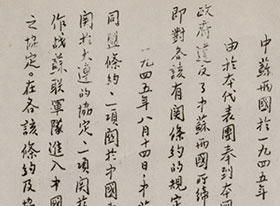 中蘇兩國於一九四五
由於本代表團奉到本國
政府違反了中蘇兩國所締
即對各該有関條約的規定
一九四五年八月十四日中
同盟條約、一項關於中國
関於大連的協定、一項関於
作战蘇联軍隊進入中國
之協定。在各該條約及協